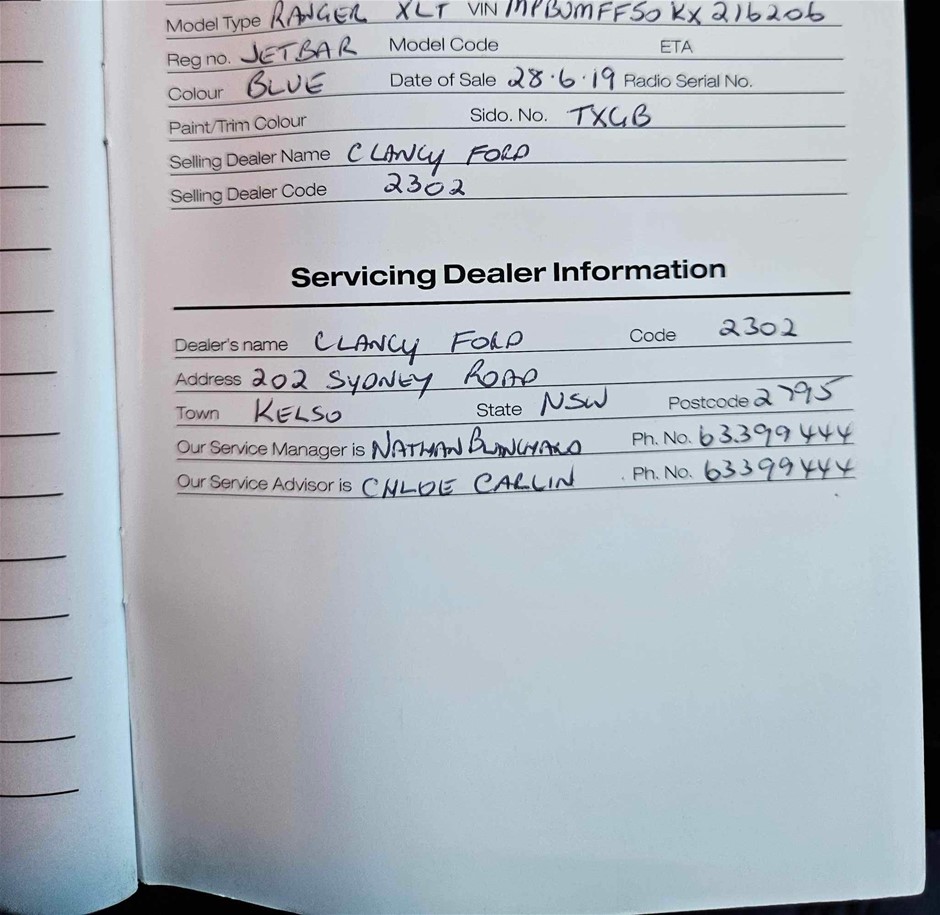 Model Type RANGER XLT VIN MPBUMFF50KX216206
Reg no. JETBAR Model Code ETA
Colour BLUE Date of Sale 28·6·19 Radio Serial No.
Paint/Trim Colour Sido. No. TXGB
Selling Dealer Name CLANCY FORD
Selling Dealer Code 2302
Servicing Dealer Information
Dealer's name CLANCY FORD Code 2302
Address 202 SYDNEY ROAD
Town KELSO State NSW Postcode 2795
Our Service Manager is NATHAN Ph. No. 63399444
Our Service Advisor is CHLOE CARLIN Ph. No. 63399444